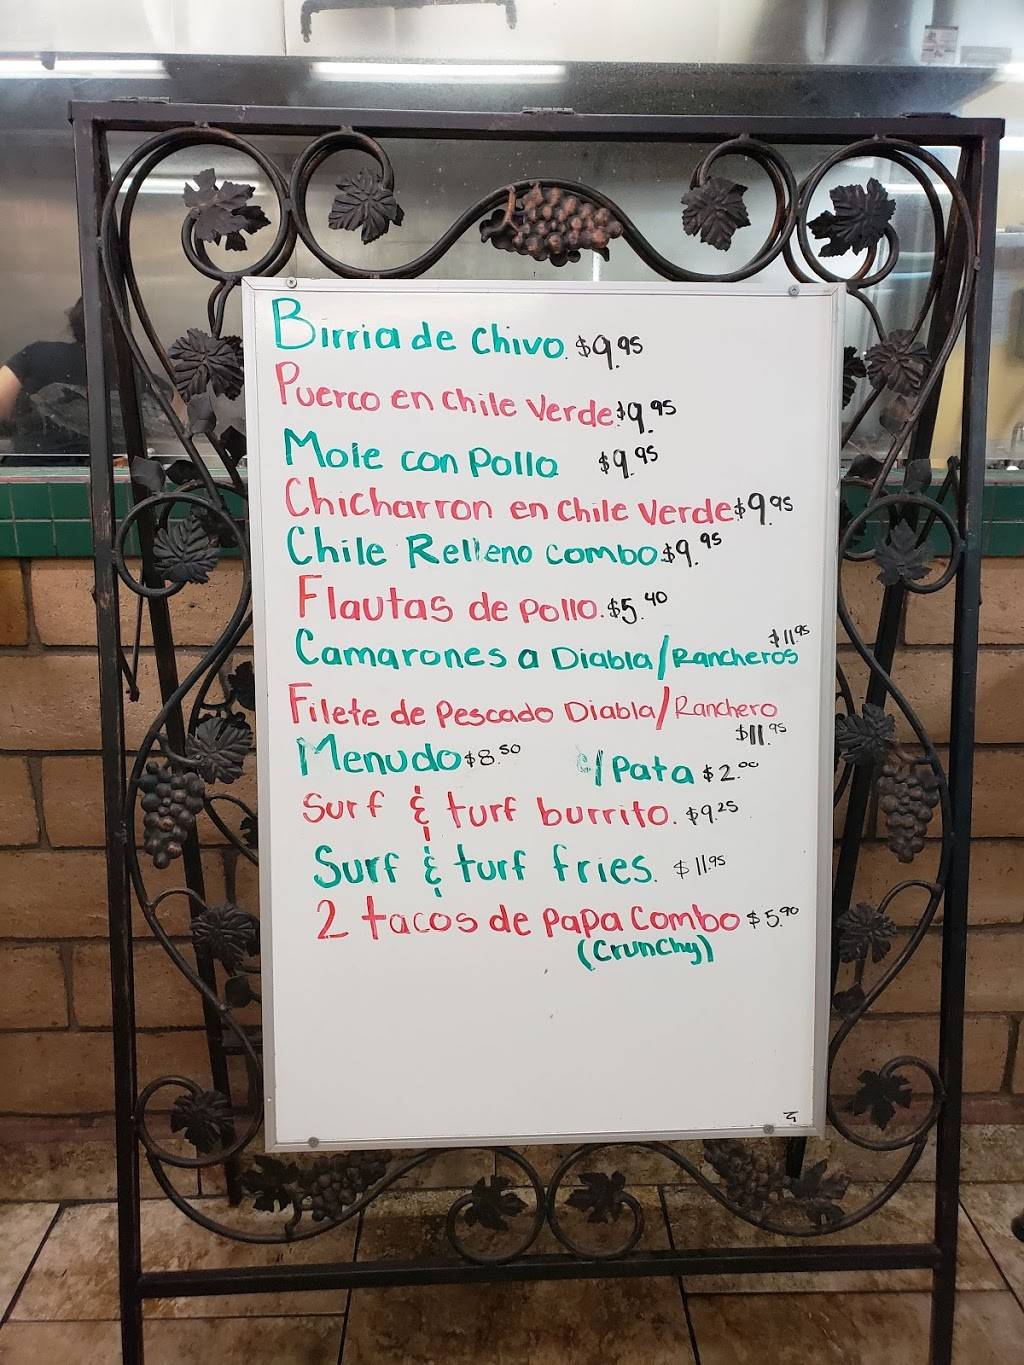 Birria de Chivo. $9.95
Puerco en Chile Verde $9.95
Mole con Pollo $9.95
Chicharron en Chile Verde $9.95
Chile Relleno combo $9.95
Flautas de Pollo. $5.40
Camarones a Diabla/Rancheros $11.95
Filete de Pescado Diabla/Ranchero
$11.95
Menudo $8.50 c/Pata $2.00
Surf & turf burrito. $9.25
Surf & turf fries. $11.95
2 tacos de PaPa Combo $5.90
(Crunchy)